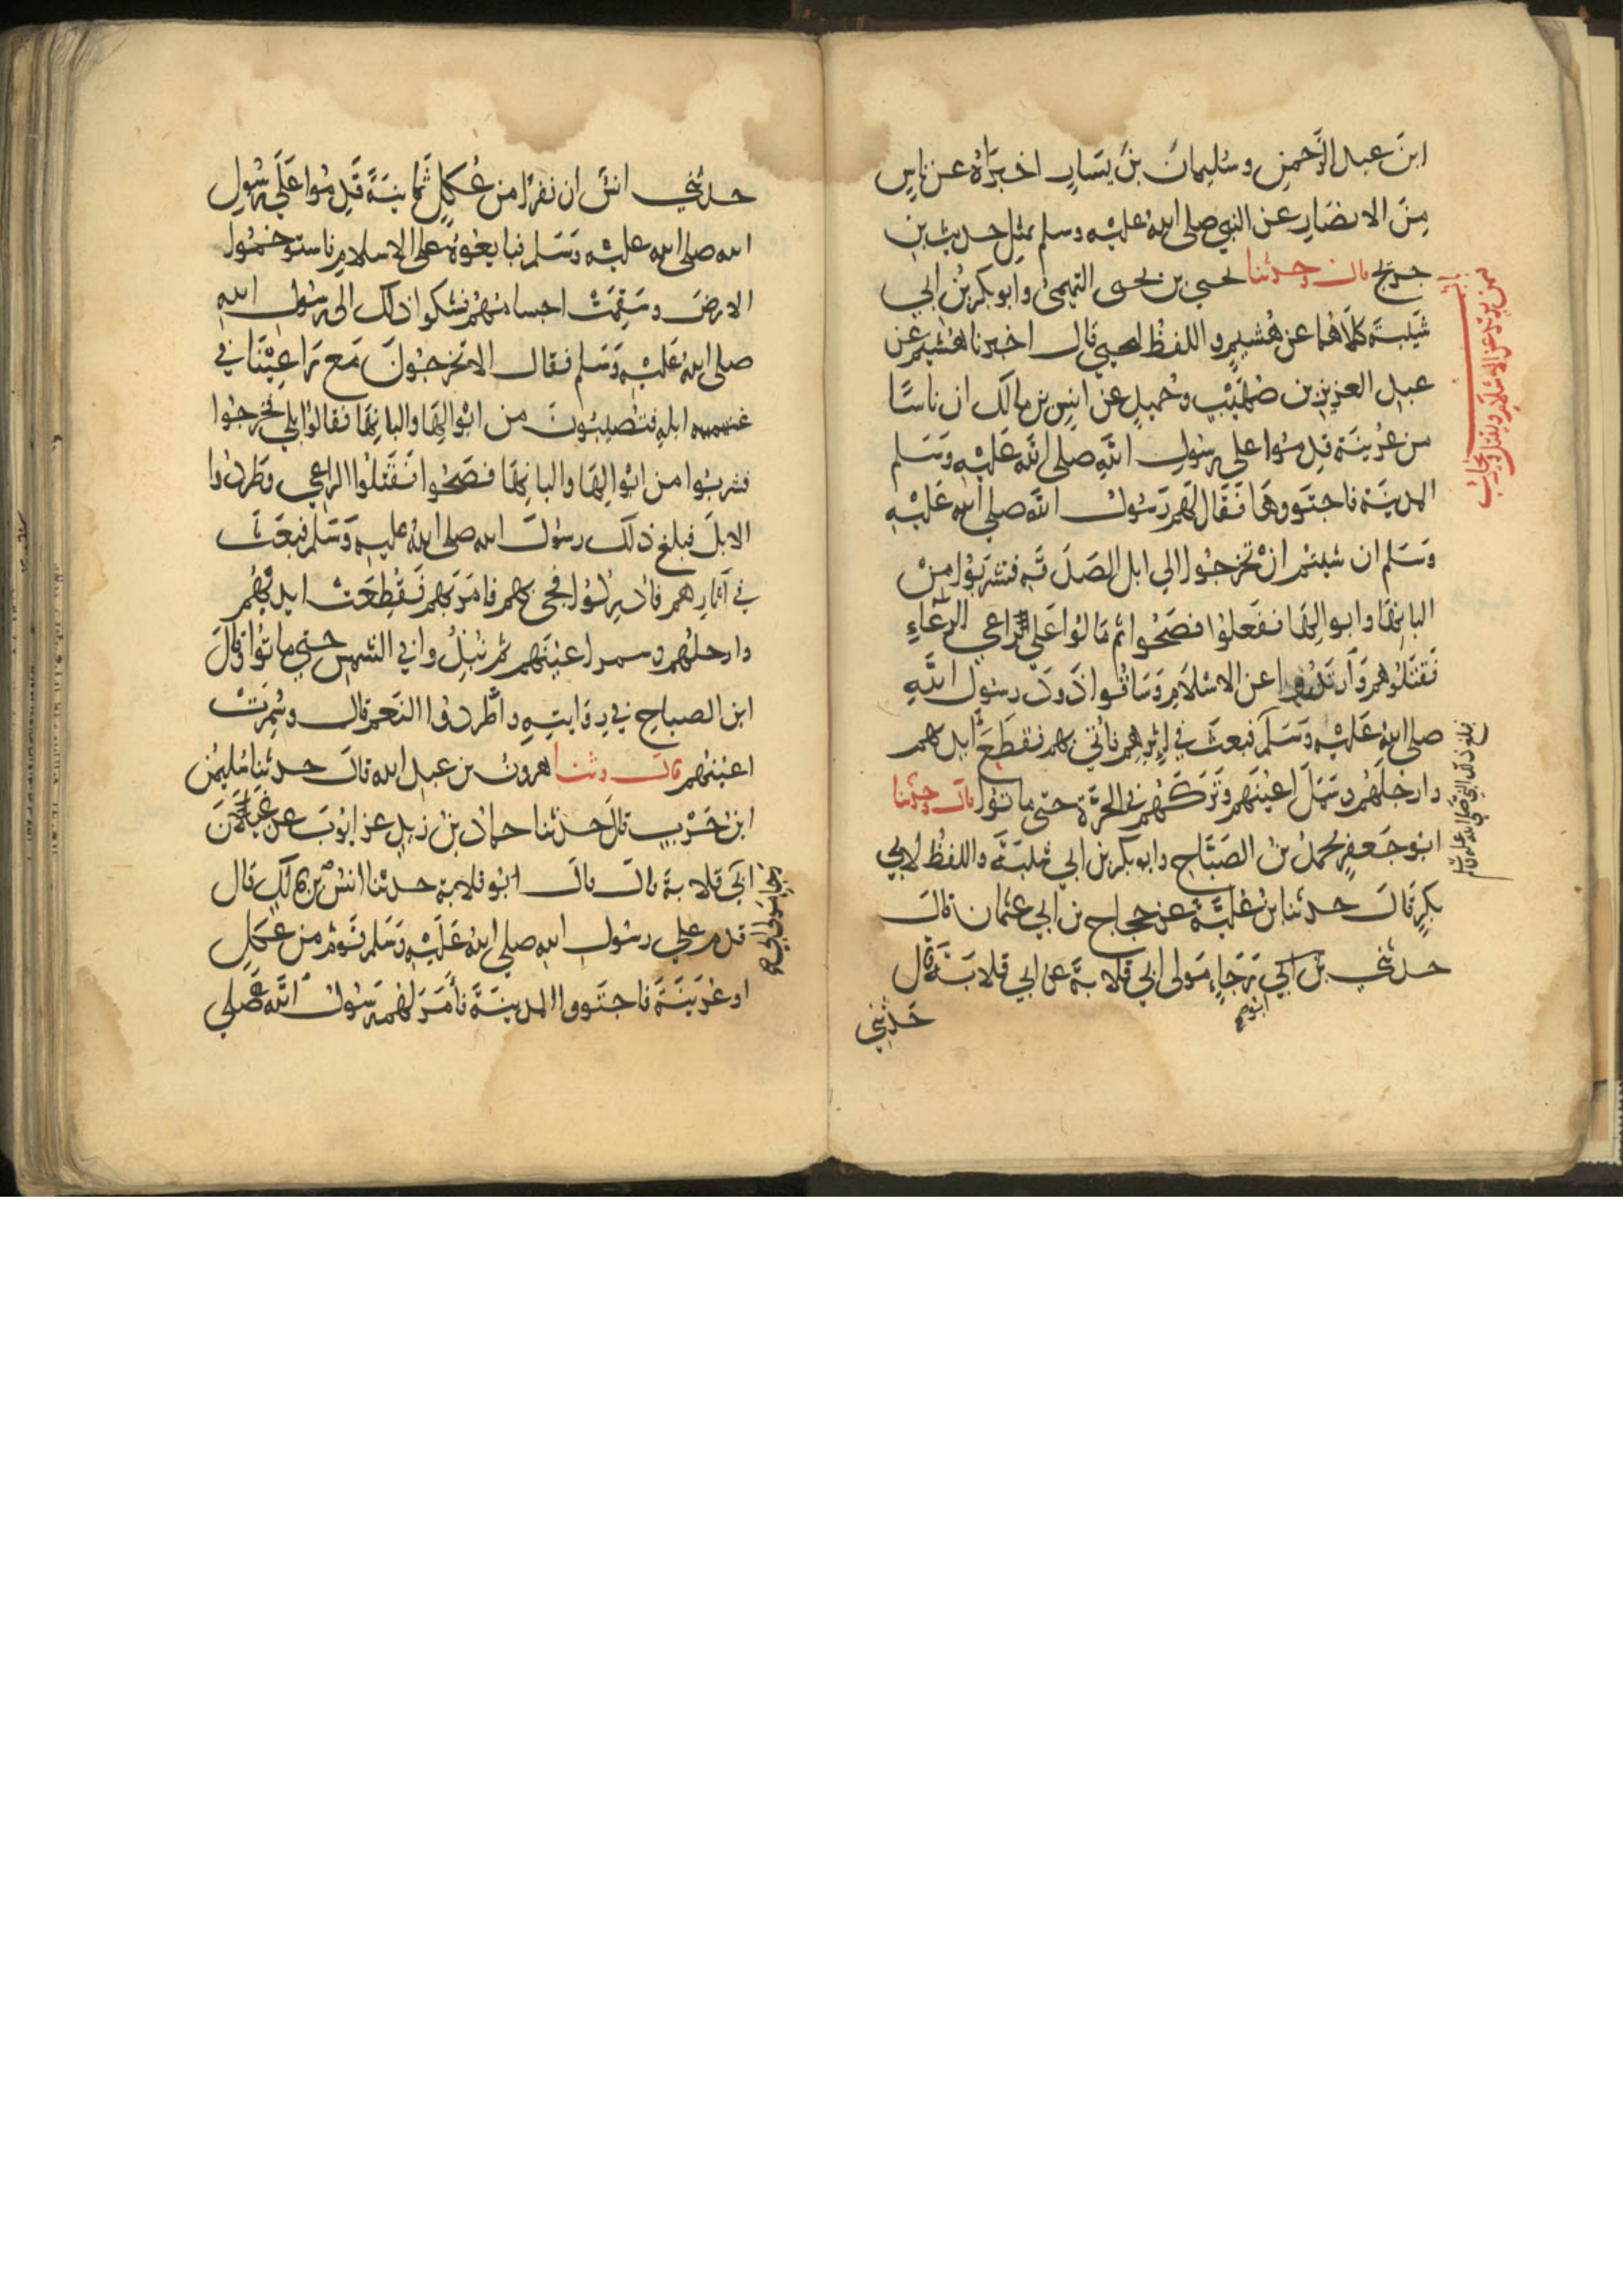 ابنَ عبد الرَّحمنِ وسُليمانَ بنَ يَسَارٍ اخبَرَاهُ عن ناسٍ
مِنَ الانصَارِ عن النبي صلى اللهُ عليْه وسلم بمثِل حديث بنِ
جريج قال وحدثنا يحيى بن يحيى التميمىُ وابو بكر بنُ ابي
شَيْبَةَ كلَاهُما عن هُشَيمٍ واللفظُ ليحيى قال اخبرنا هُشيم عن
عبد العزيز بن صُهَيْب وحُميدٍ عن انسِ بن مالك ان ناسًا
من عُرَينَة قدمُوا على رسُولِ اللهِ صَلى اللهُ عَليْهِ وَسَلم
المدينة فاجتَووهَا فَقَال لَهم رَسُولُ الله صلى الله عَلَيْهِ
وَسَلم ان شيتم انْ تَخرجُوا الي ابل الصَدَقَةِ فتشرَبُوا مِنْ
البانِهَا وابوالِهَا ففَعلوُا فصَحُّوا ثم مَالوُا عَلى الرِّعَاءِ
فَقَتَلُوهم وَارتَدُّوا عن الاسْلَامِ وَسَاقُوا ذَودَ رسُول اللَّهِ
صلى اللهُ عَليْه وَسَلَّم فبعثَ في اِثْرِهِم فاُتي بهم فقَطَعَ ايديهم
وارجلَهُم وسَمَلَ اعيُنَهم وَتَرَكَهُم في الحرَّة حتى ماتوُا قال وحدثنا
ابُو جَعفرٍ محمدُ بنُ الصَبَّاحِ وابو بكر بن ابي شَيبَةَ واللفظُ لابي
بكرٍ قَالَ حدثنا بنُ عُليَّةَ عن حجاج بن ابي عثمان قالَ
حدثني بن ابي رَجَاءٍ مَولى ابي قلابةَ عن ابي قلابَةَ قال
ابو
حَدثني
باب
فمن يرتد عن الاسلام ويقتل ويحارب
فبلغ ذلك النبي صلى الله عليه وسلم
حدثني انسٌ ان نفرًا من عُكلٍ ثَمَانيَةً قَدِمُوا عَلَى رسُولِ
الله صلى الله عليْه وَسَلم فبايعُوهُ على الاسلام فاستوخمُوا
الارضَ وسَقِمَتْ اجسامُهُم فشكوا ذلك الى رسُول اللهِ
صلى اللهُ عَليْه وَسَلم فقال الا تَخرجُونَ مَع رَاعِيْنَا في
ابلِهِ فتُصيبُونَ من ابْوَالِهَا والبانِهَا فقالوُا بلى فخرجُوا
فشربُوا من ابْوالِهَا والبانِهَا فصَحُّوا فَقَتلُوا الراعي وطَرَدُوا
الابلَ فبلغ ذلك رسُولَ الله صلى اللهُ عليه وَسَلم فبعَثَ
في آثارِهم فاُدرِكُوا فجىَ بهم فامَرَ بهم فَقُطِعَتْ ايديهُم
وارجلُهم وسمر اعيُنَهم ثم نُبِذُوا في الشمسِ حتى ماتُوا وقالَ
ابن الصباح في رِوَايتِهِ واطَّرَدُوا النَعم قال وسُمِرَتْ
اعيُنهُم قال وثنا هرونُ بن عبد الله قالَ حدثنا سُليمنُ
ابنُ حَرْبٍ قالَ حدثنا حمادُ بنُ زيدٍ عن ايُوبَ عن
ابي قلابةَ قال قال ابُو قلابة حدثنا انسُ بن مالكٍ قال
قدم على رسُول اللهِ صلى اللهُ عَلَيْهِ وَسَلم قَومٌ من عُكلٍ
او عُرَينَةَ فاجتَووا المدينَةَ فأمَرَ لهُم رَسُولُ اللهِ صَلي
رجا مولى ابي